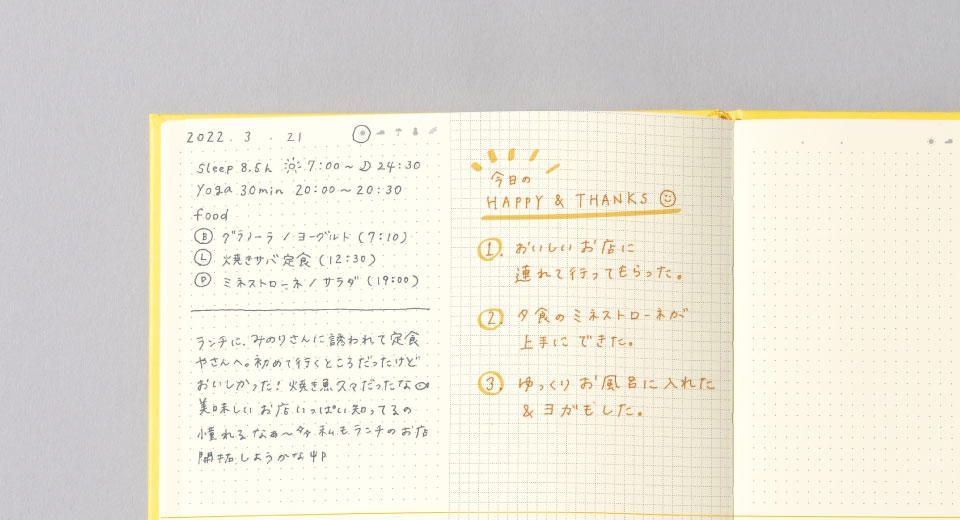 2022. 3 . 21
Sleep 8.5h 7:00〜 24:30
Yoga 30min 20:00〜20:30
food
B グラノーラ / ヨーグルト (7:10)
L 焼きサバ定食 (12:30)
P ミネストローネ / サラダ (19:00)
ランチに、みのりさんに誘われて定食
やさんへ。初めて行くところだったけど
おいしかった! 焼き魚久々だったな
美味しい お店 いっぱい知ってるの
憧れる なぁ〜 私も ランチの お店
開拓しようかな
今日の
HAPPY & THANKS
1. おいしい お店に
連れて行ってもらった。
2. 夕食の ミネストローネが
上手に できた。
3. ゆっくり お風呂に入れた
& ヨガもした。